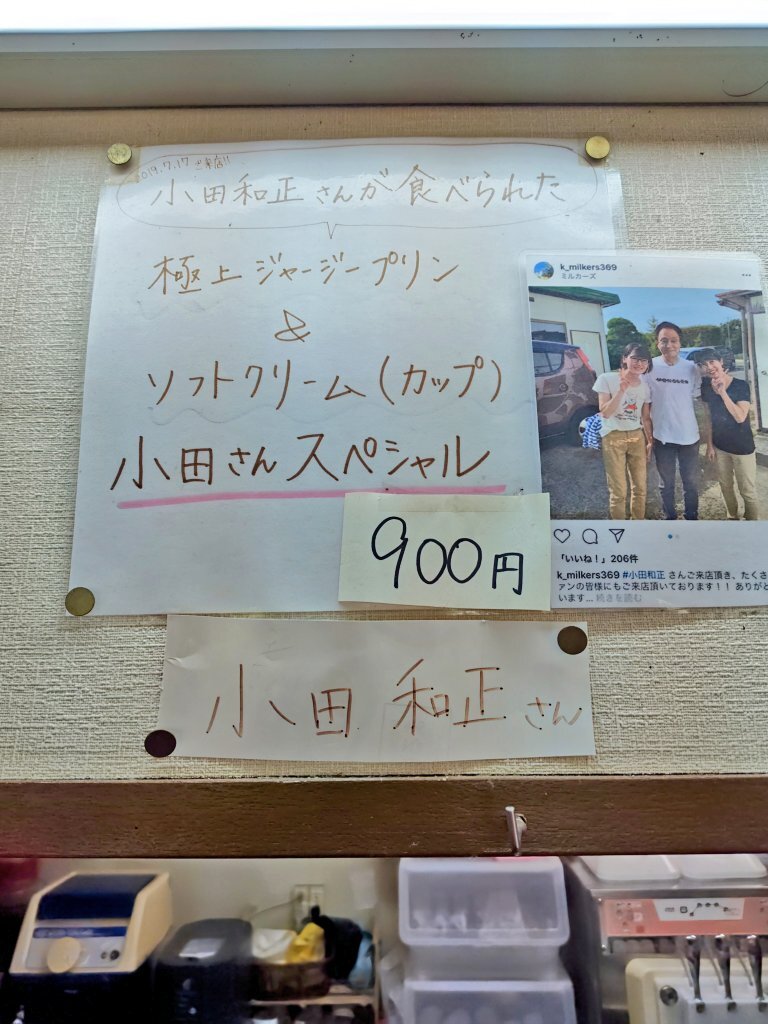 2019.7.17 ご来店!!
小田和正さんが食べられた
極上ジャージープリン
&
ソフトクリーム(カップ)
小田さんスペシャル
900円
k_milkers369
ミルカーズ
「いいね!」206件
k_milkers369 #小田和正 さんご来店頂き、たくさ
ァンの皆様にもご来店頂いております!! ありがと
います... 続きを読む
小田 和正さん